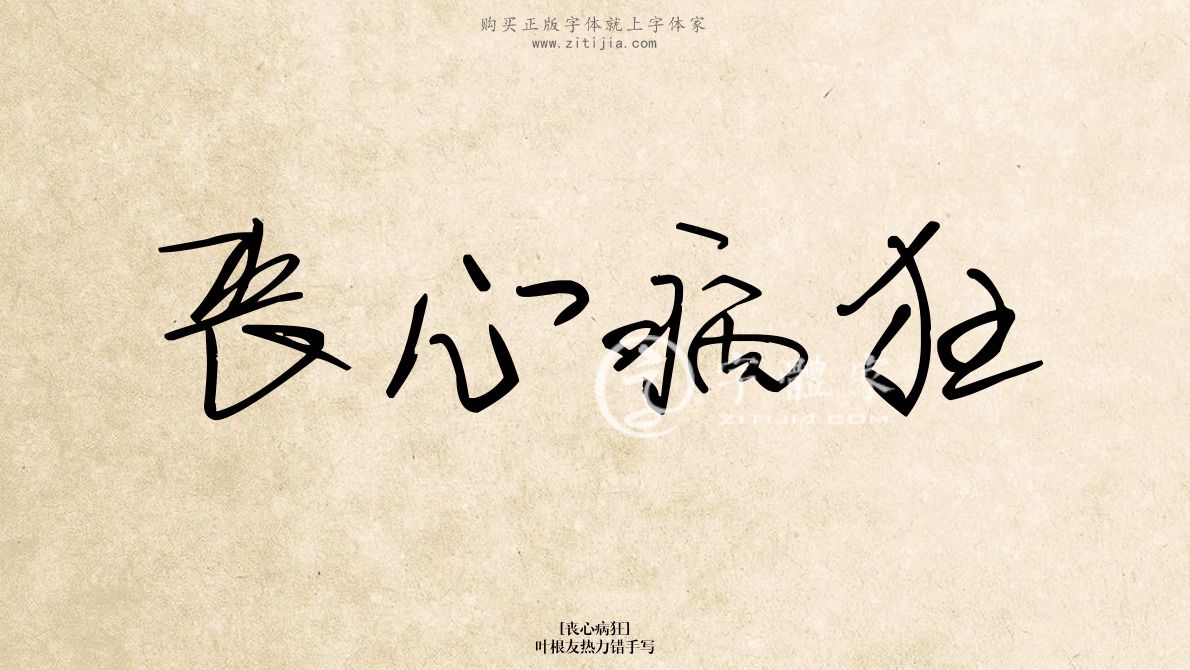 购买正版字体就上字体家
www.zitijia.com
丧心病狂
字體家
ZITIJIA.COM
[丧心病狂]
叶根友热力错手写